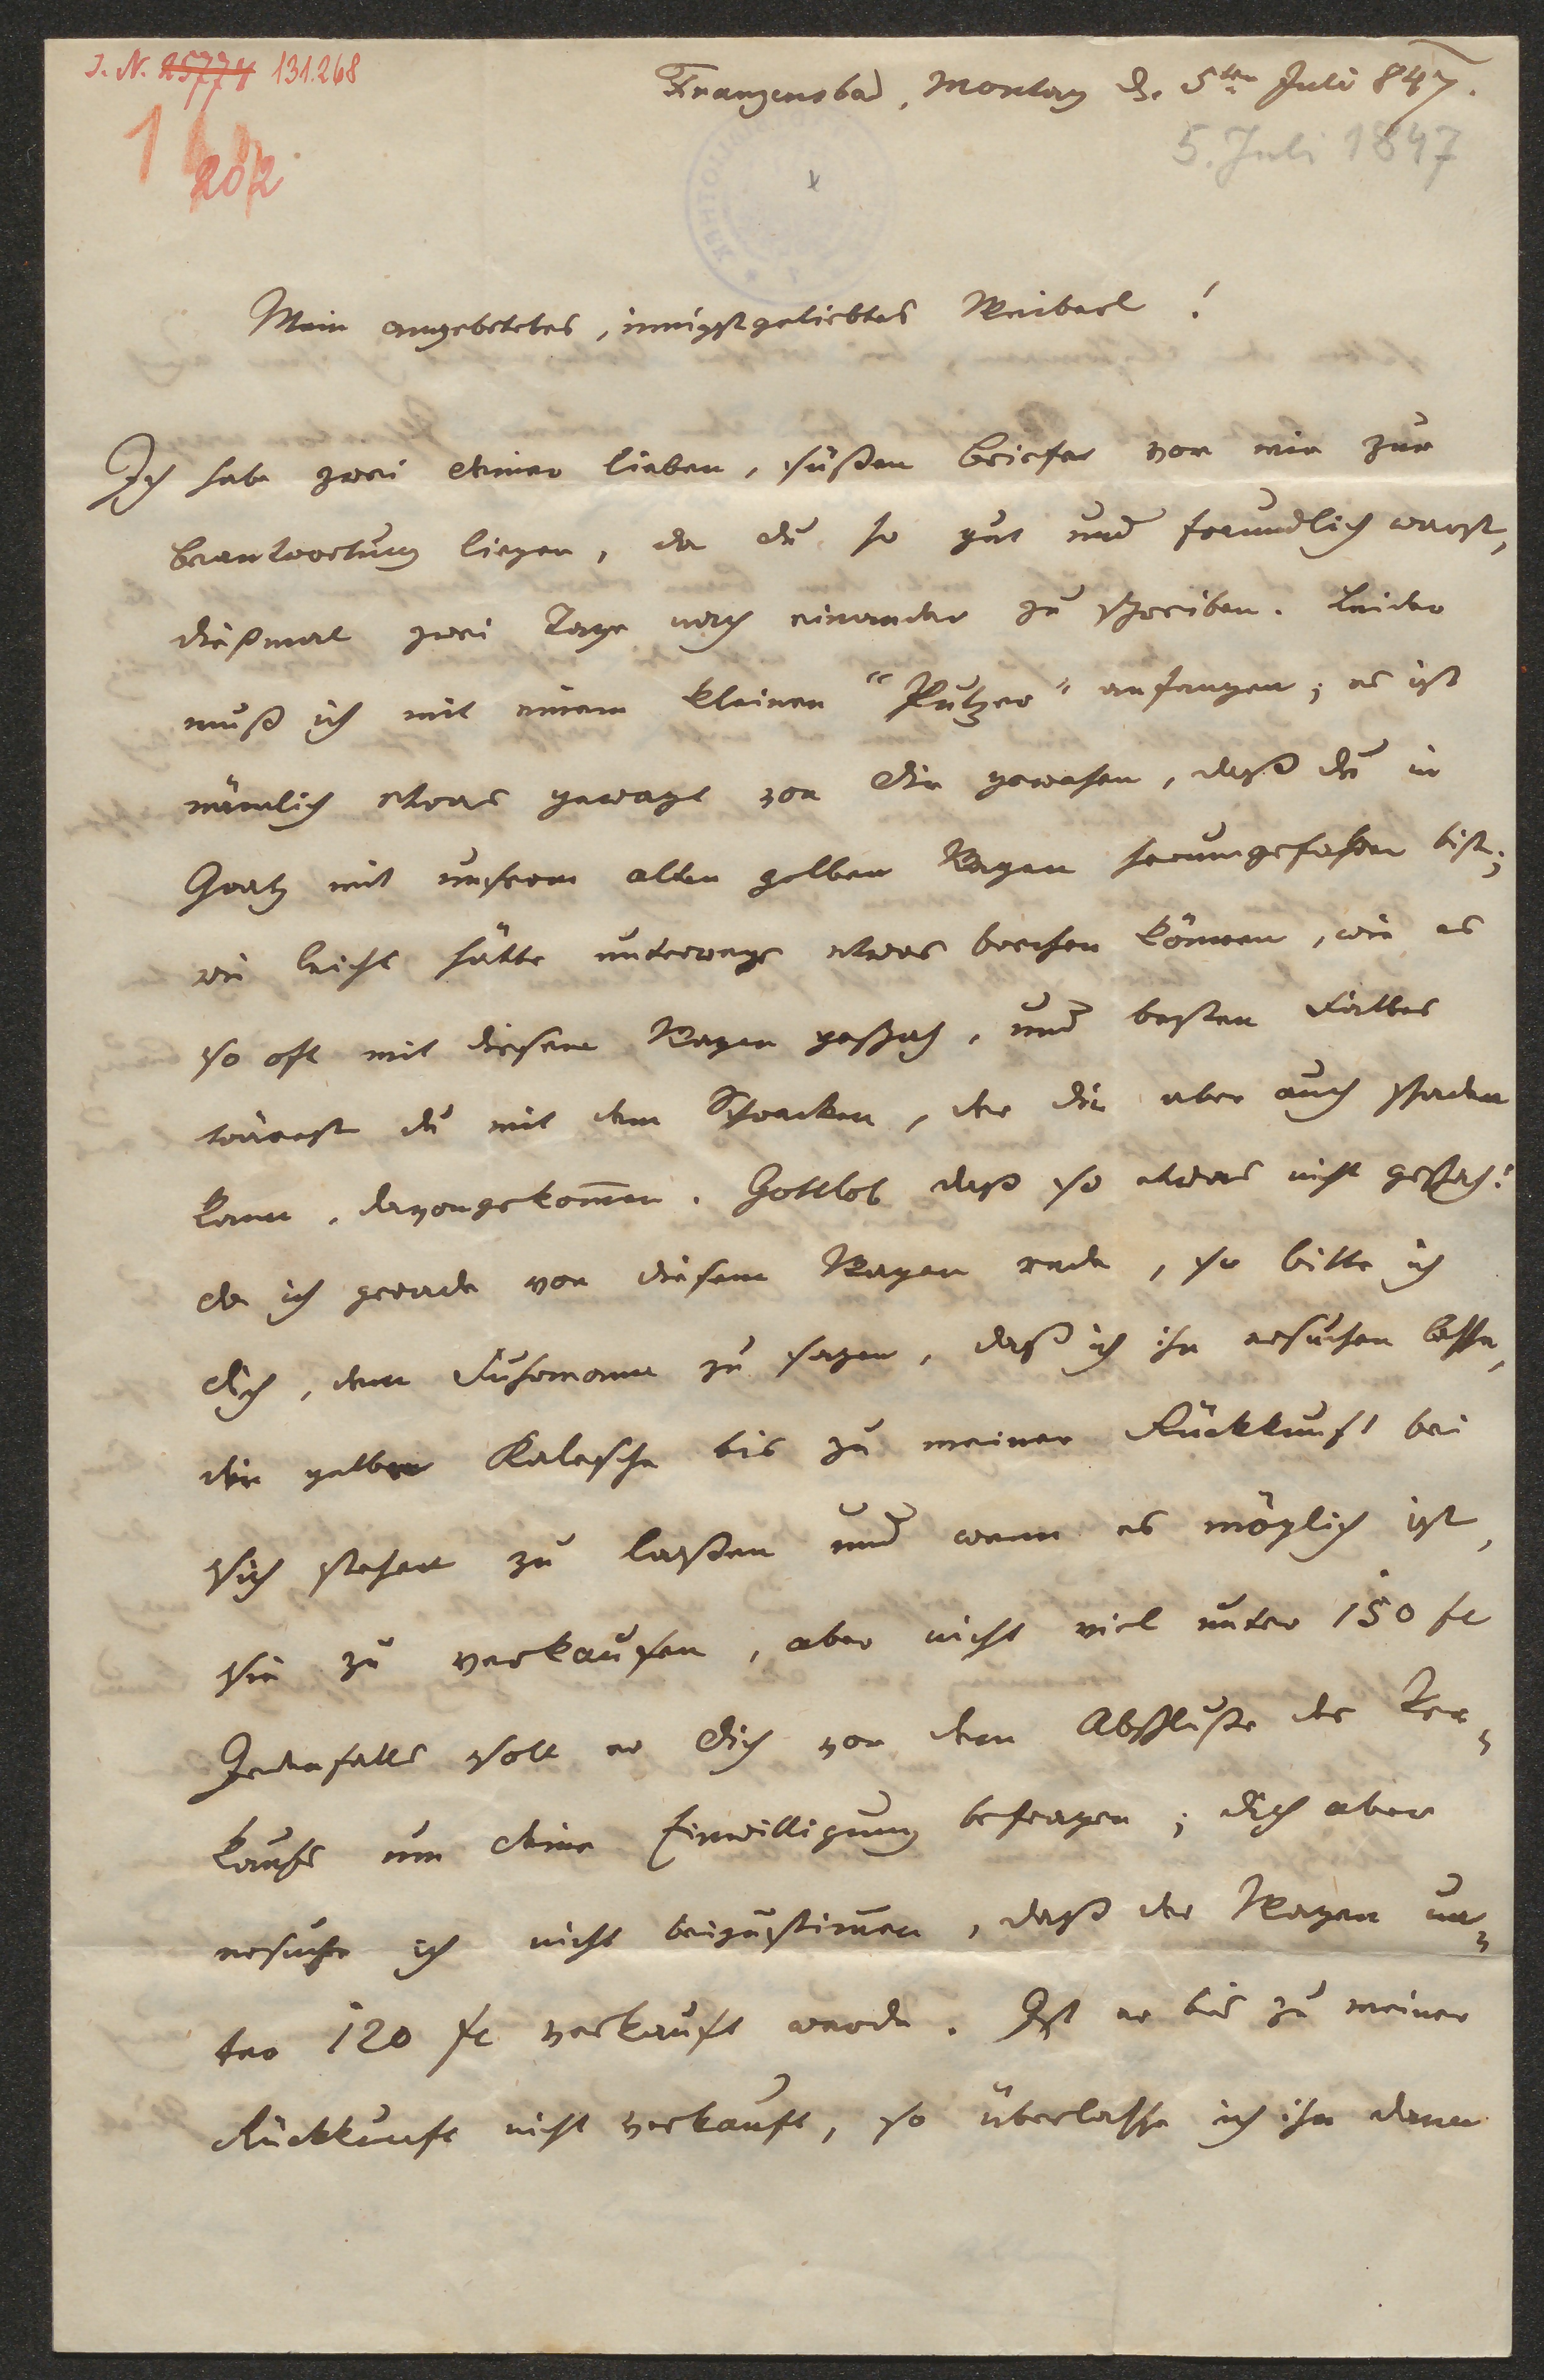 J. N. 25774 131.268
Franzensbad, Montag d. 5ten Juli 847.
5. Juli 1847
202
Mein angebetetes, innigstgeliebtes Weiberl!
Ich habe zwei deiner lieben, süßen Briefe vor mir zur
Beantwortung liegen, da du so gut und freundlich warst,
dießmal zwei Tage nach einander zu schreiben. Leider
muß ich mit einem kleinen "Putzer" anfangen; es ist
nämlich etwas gewagt von dir gewesen, daß du in
Gratz mit unserem alten gelben Wagen herumgefahren bist;
wie leicht hätte unterwegs etwas brechen können, wie es
so oft mit diesem Wagen geschah, und besten Falles
wärest du mit dem Schrecken, der dir aber auch schaden
kann, davongekom̅en. Gottlob daß so etwas nicht geschah!
da ich gerade von diesem Wagen rede, so bitte ich
dich, dem Fuhrmann zu sagen, daß ich ihn ersuchen lasse,
die gelbe Kalesche bis zu meiner Rückkunft bei
sich stehen zu laßen und wenn es möglich ist,
sie zu verkaufen, aber nicht viel unter 150 fl
Jedenfalls soll er dich vor dem Abschluße des Ver=
kaufs um deine Einwilligung befragen; dich aber
ersuche ich nicht beizustim̅en, daß der Wagen un=
ter 120 fl verkauft werde. Ist er bis zu meiner
Rückkunft nicht verkauft, so überlasse ich ihn dann